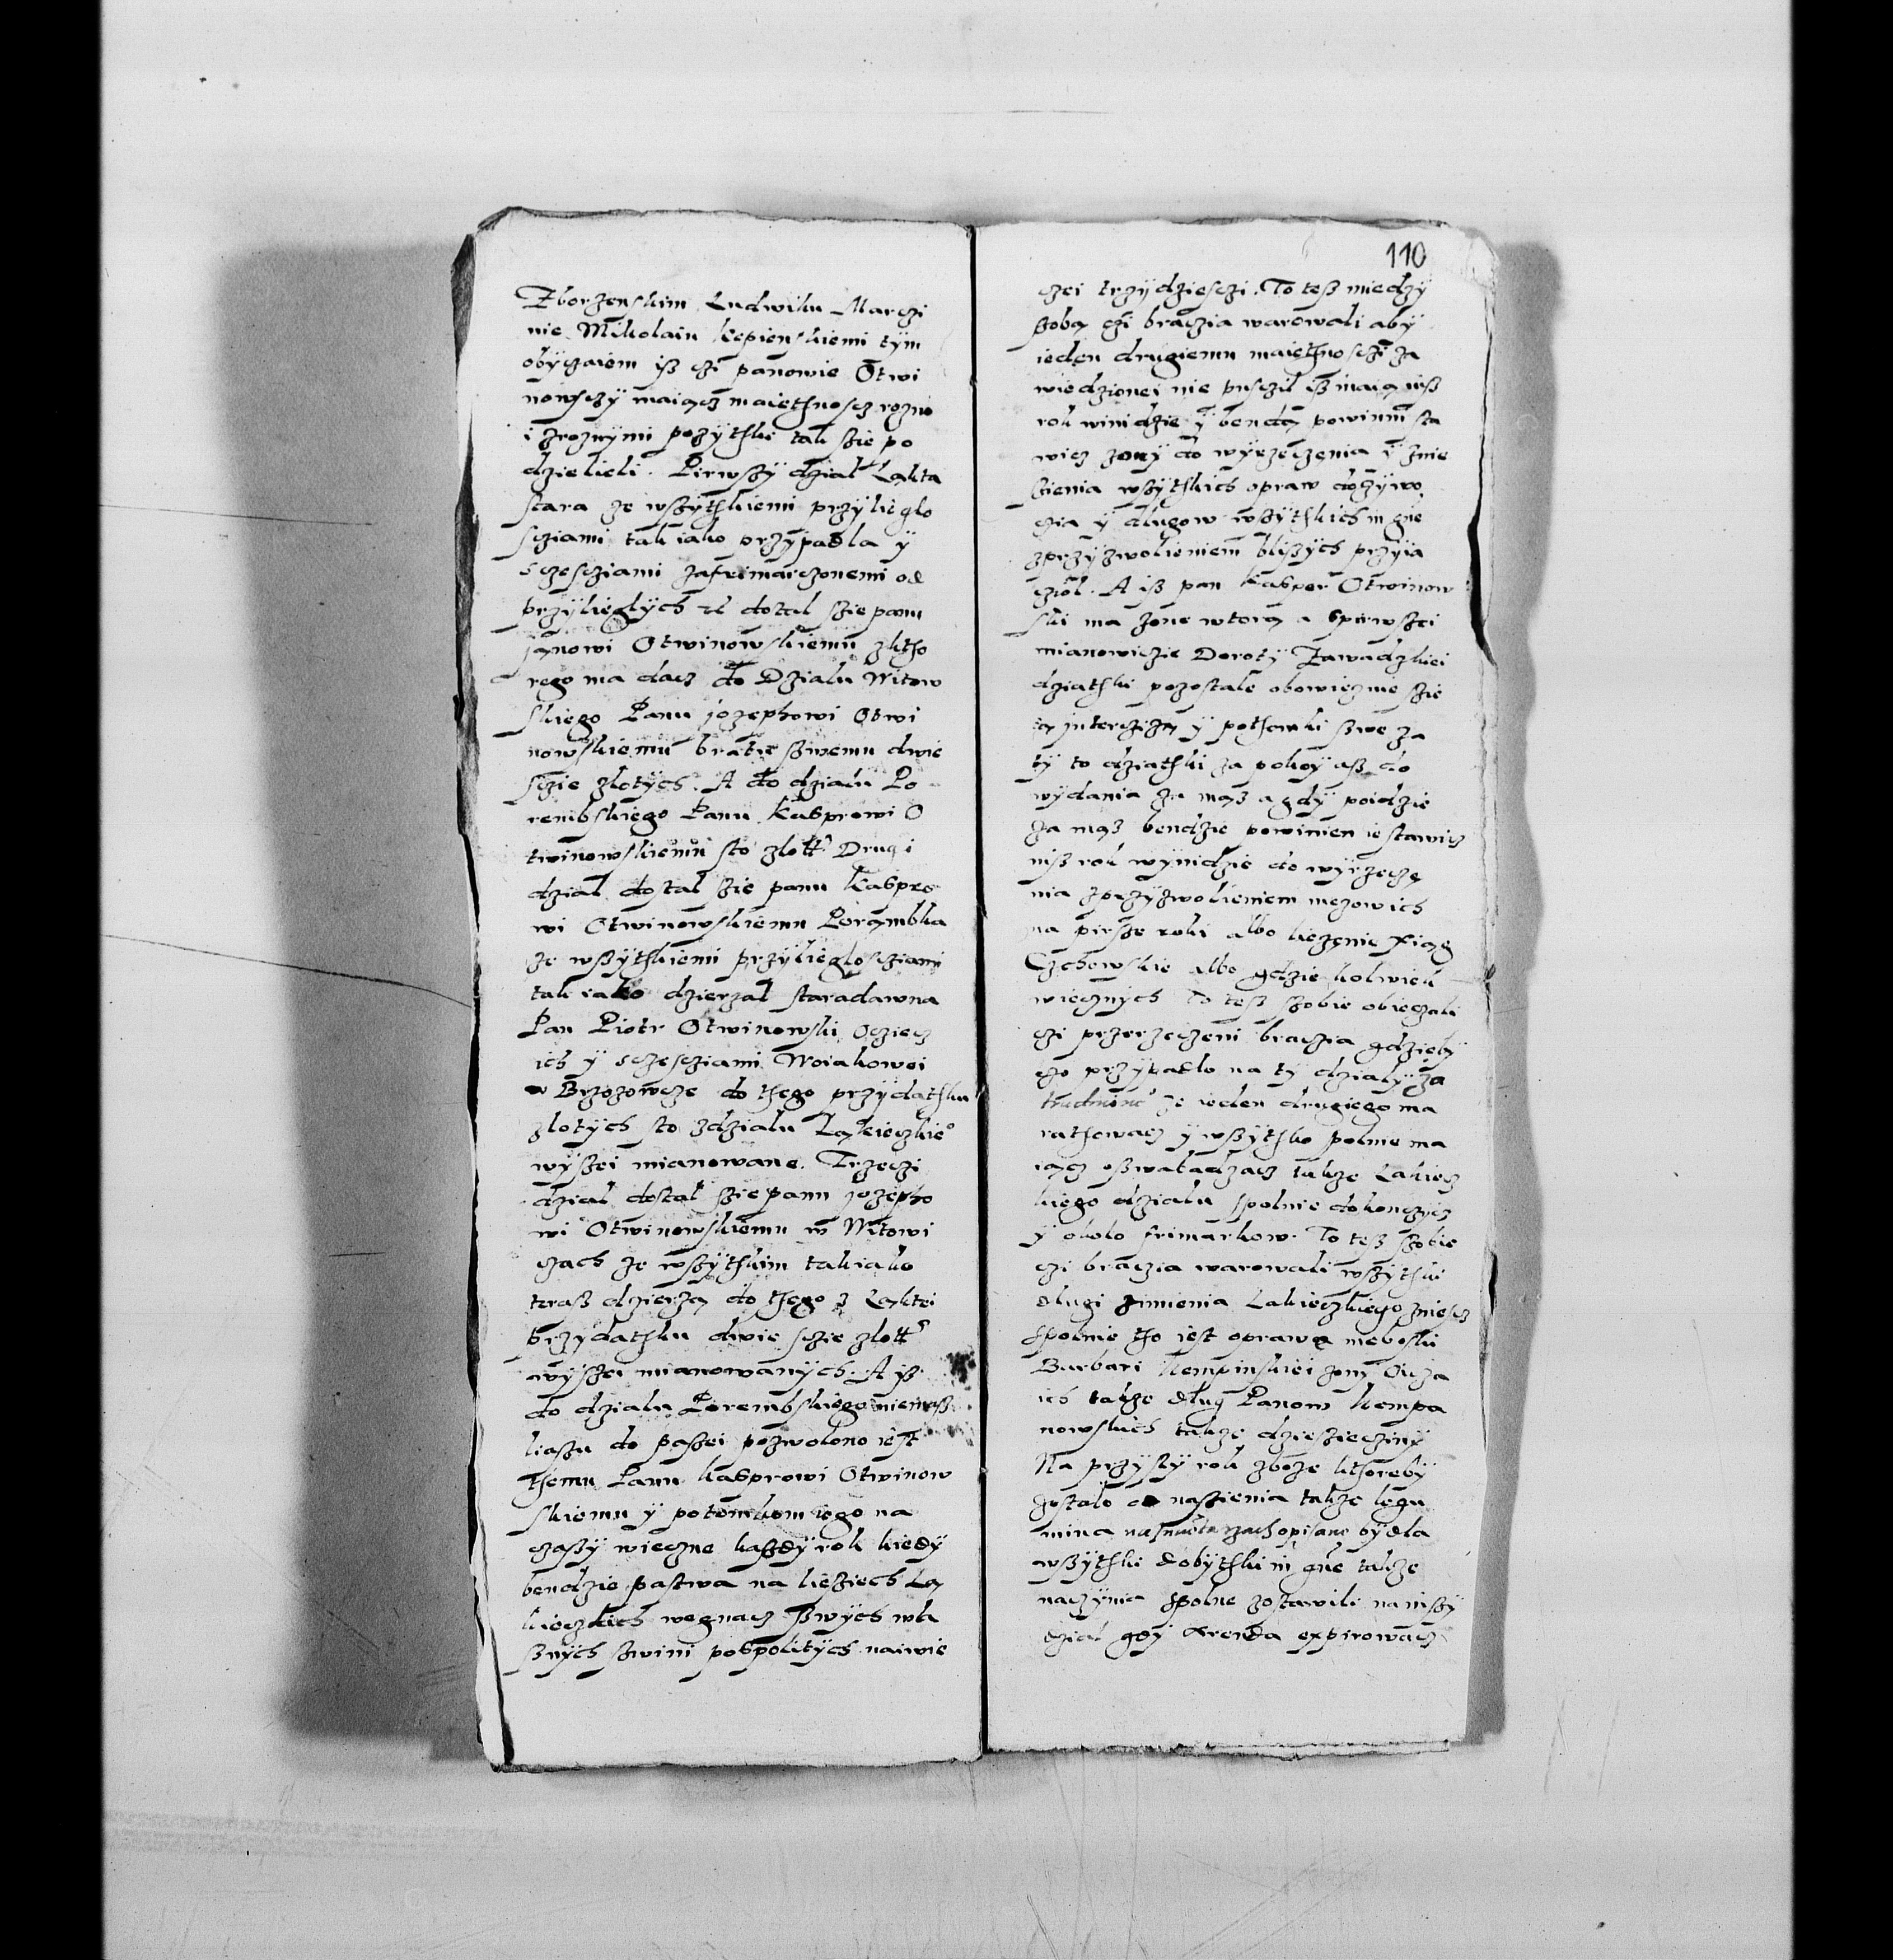 Zborzenskim Ludwiku Marczi
nie Mikolaiu Kępienskiemi tÿm
obÿczaiem isz czi panowie Otwi
nowsczÿ maiącz maiethnoscz rozno
i zroznymi pozÿthki tak szie po
dzielieli. Pirwszÿ dzial Ląkta
stara ze wszÿthkiemi przÿlieglo
scziami tak iako przÿpadla ÿ
sczesciami zafrimarczonemi od
przÿlieglÿch dostal szie panu
janowi Otwinowskiemu zktho
rego ma dacz do Dzialu Witow
skiego Panu jozephowi Otwi
nowskiemu bratu szwemu dwie
sczie zlotÿch. A do dzialu Po
rembskiego Panu Kasprowi O
twinowskiemu sto zlott. Drugi
dzial dostal szie panu Kaspro
wi Otwinowskiemu Porąmbka
ze wszÿthkiemi przÿlieglosciami
tak iako dzierzal staradawna
Pan Piotr Otwinowski Ocziecz
ich ÿ sczesciami Woiakowei
w Brzozowcze do thego przÿdathku
zlotÿch sto zdzialu Ląkieczkie°
wÿszei mianowane. Trzeczi
dzial dostal szie panu jozepho
wi Otwinowskiemu w Witowi
czach ze wszÿthkim tak iako
terasz dzierzą do thego z Ląktei
przÿdathku dwie sczie zlott
wÿszei mianowanÿch. A isz
do dzialu Porembskiego niemasz
liassu do paszei pozwolono iest
themu Panu Kasprowi Otwinow
skiemu ÿ potomkom iego na
czaszÿ wieczne kaszdÿ rok kiedÿ
bendzie pastwa na liesiech Lą
kieczkich wegnacz szwÿch wła
sznÿch szwini pospolitÿch naiwie
110
czei trzÿdziesczi. To tesz miedzÿ
szobą czi braczia warowali abÿ
ieden drugiemu maiethnosczi za
wiedzionei nie pusczil isz maią nisz
rok winidzie ÿ bendą powinni sta
wicz zonÿ do wÿrzeczenia ÿ znie
szienia wszÿthkich opraw dozÿwo
czia ÿ dlugow wszÿthkich in gne
zprzÿzwolieniem bliszÿch przÿia
cziol. A isz pan Kasper Otwinow
ski ma zone wtorą a spirwszei
mianowiczie Dorotÿ Zawadzkiei
dziathki pozostale obowięzuie szie
tą interczizą ÿ pothomki szwe za
tÿ to dziathki za pokoÿ asz do
wÿdania za mąsz a gdÿ poidzie
za mąsz bendzie powinien ie stawicz
nisz rok wÿnidzie do wÿrzecze
nia zprzÿzwolieniem mezow ich
na pirsze roki albo liezenie xiąg
Czchowskie albo gdzie kolwiek
wiecznÿch To tesz szobie obieczali
czi przerzeczeni braczia gdziebÿ
czo przÿpadlo na tÿ dzialÿ za
trudninie ze ieden drugiego ma
rathowacz ÿ wszÿthko polnie ma
iącz oszwabadzacz takze Łakiecz
kiego dzialu spolnie dokonczÿcz
ÿ okolo frimarkow. To tesz szobie
czi braczia warowali wszÿthki
dlugi zimienia Lakieczkiego zniescz
spolnie tho iest oprawą neboski
Barbari Kempinskiei zonÿ Oicza
ich takze dlug Panow Kempa
nowskich takze dziesziecinÿ
Na przÿszlÿ rok zboze kthorebÿ
zostalo od naszienia takze legu
mina opisane bÿdla
wszÿthki dobÿthki in gne takze
naczÿnia spolne zostawili na niszÿ
dzial gdÿ Arenda expirowacz